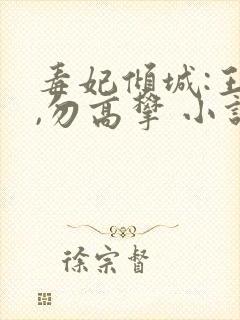 毒妃倾城:王
,勿高攀 小说
徐宗督